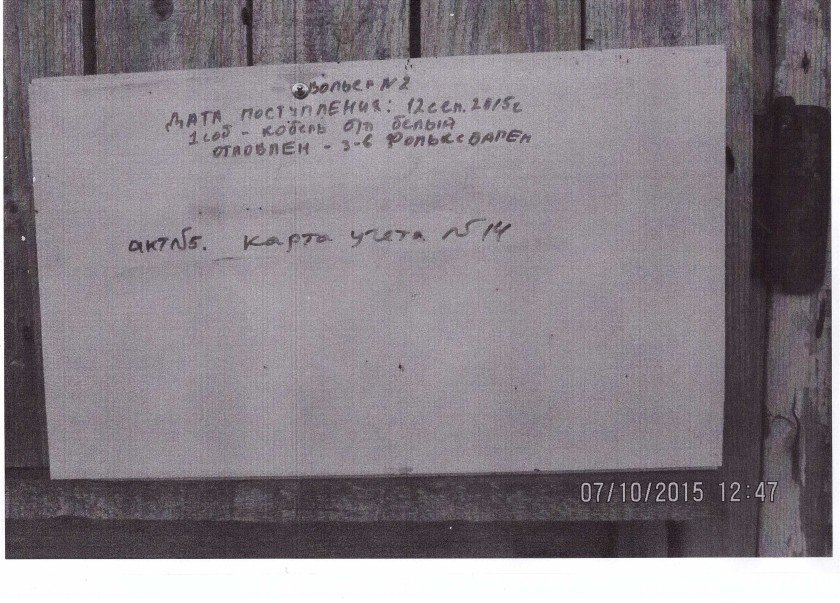 ВОЛЬЕР N 2
ДАТА ПОСТУПЛЕНИЯ: 12 сен. 2015г
1 соб - кобель б/п белый
ОТЛОВЛЕН - з-в ФОЛЬКСВАГЕН
акт №5. карта учета №14
07/10/2015 12:47